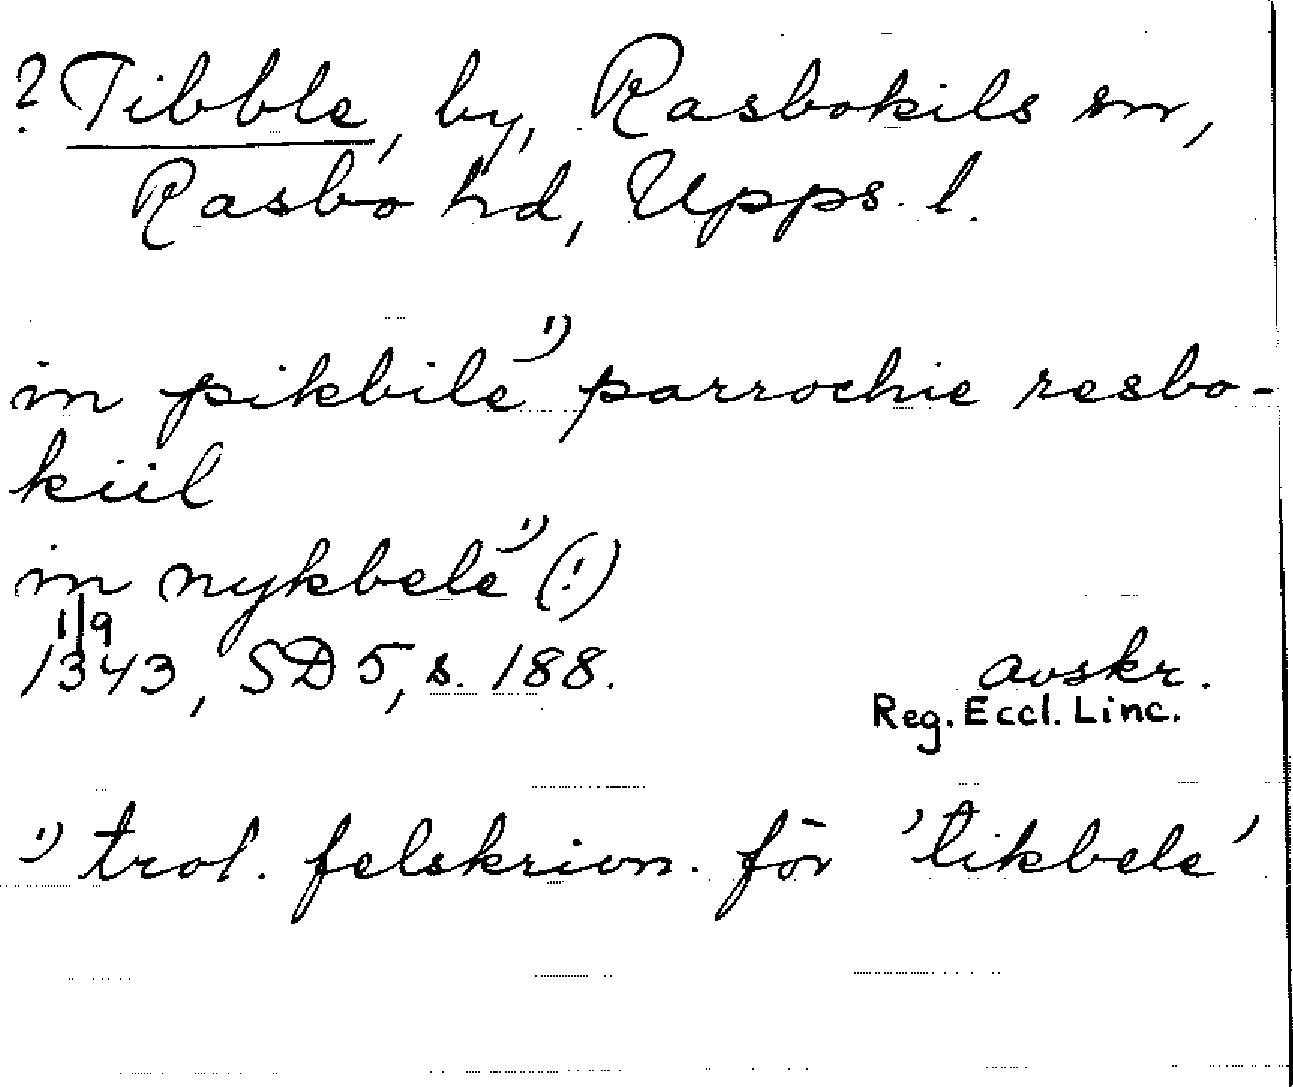 ? Tibble, by, Rasbokils sn,
Rasbo hd, Upps. l.
in pikbile¹⁾ parrochie resbo-
kiil
in nykbele¹⁾ (!)
1/9
1343, SD 5, s. 188. avskr.
Reg. Eccl. Linc.
¹⁾ trol. felskrivn. för 'tikbele'